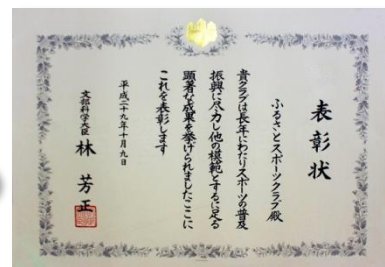 表彰状
ふるさとスポーツクラブ殿
貴クラブは長年にわたりスポーツの普及
振興に尽力し他の模範とするに足る
顕著な成果を挙げられましたここに
これを表彰します
平成二十九年十月九日
文部科学大臣 林 芳正